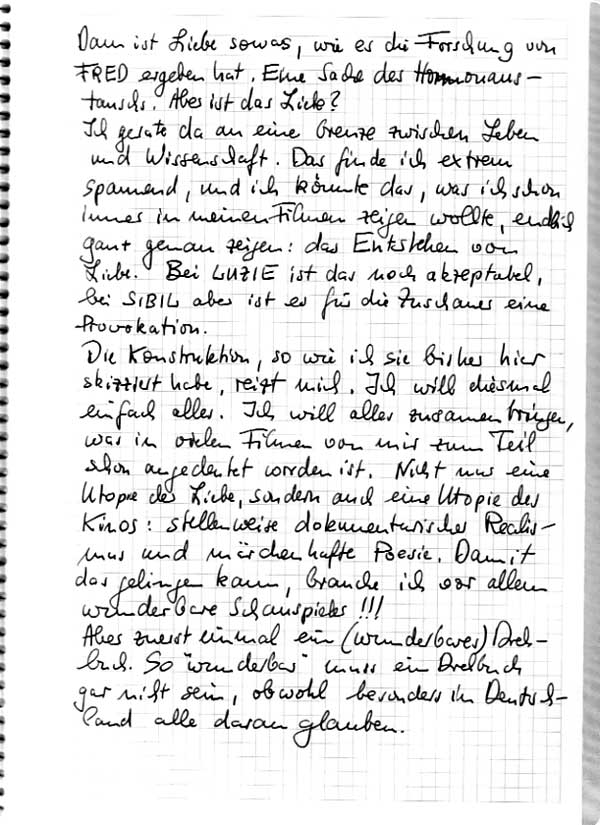 Dann ist Liebe sowas, wie es die Forschung von
FRED ergeben hat. Eine Sache des Hormonaus-
tauschs. Aber ist das Liebe?
Ich gerate da an eine Grenze zwischen Leben
und Wissenschaft. Das finde ich extrem
spannend, und ich könnte das, was ich schon
immer in meinen Filmen zeigen wollte, endlich
ganz genau zeigen: das Entstehen von
Liebe. Bei LUZIE ist das noch akzeptabel,
bei SIBIL aber ist es für die Zuschauer eine
Provokation.
Die Konstruktion, so wie ich sie bisher hier
skizziert habe, reizt mich. Ich will diesmal
einfach alles. Ich will alles zusamenbringen,
was in vielen Filmen von mir zum Teil
schon angedeutet worden ist. Nicht nur eine
Utopie der Liebe, sondern auch eine Utopie des
Kinos: stellenweise dokumentarischer Realis-
mus und märchenhafte Poesie. Damit
das gelingen kann, brauche ich vor allem
wunderbare Schauspieler!!!
Aber zuerst einmal ein (wunderbares) Dreh-
buch. So "wunderbar" muss ein Drehbuch
gar nicht sein, obwohl besonders in Deutsch-
land alle daran glauben.